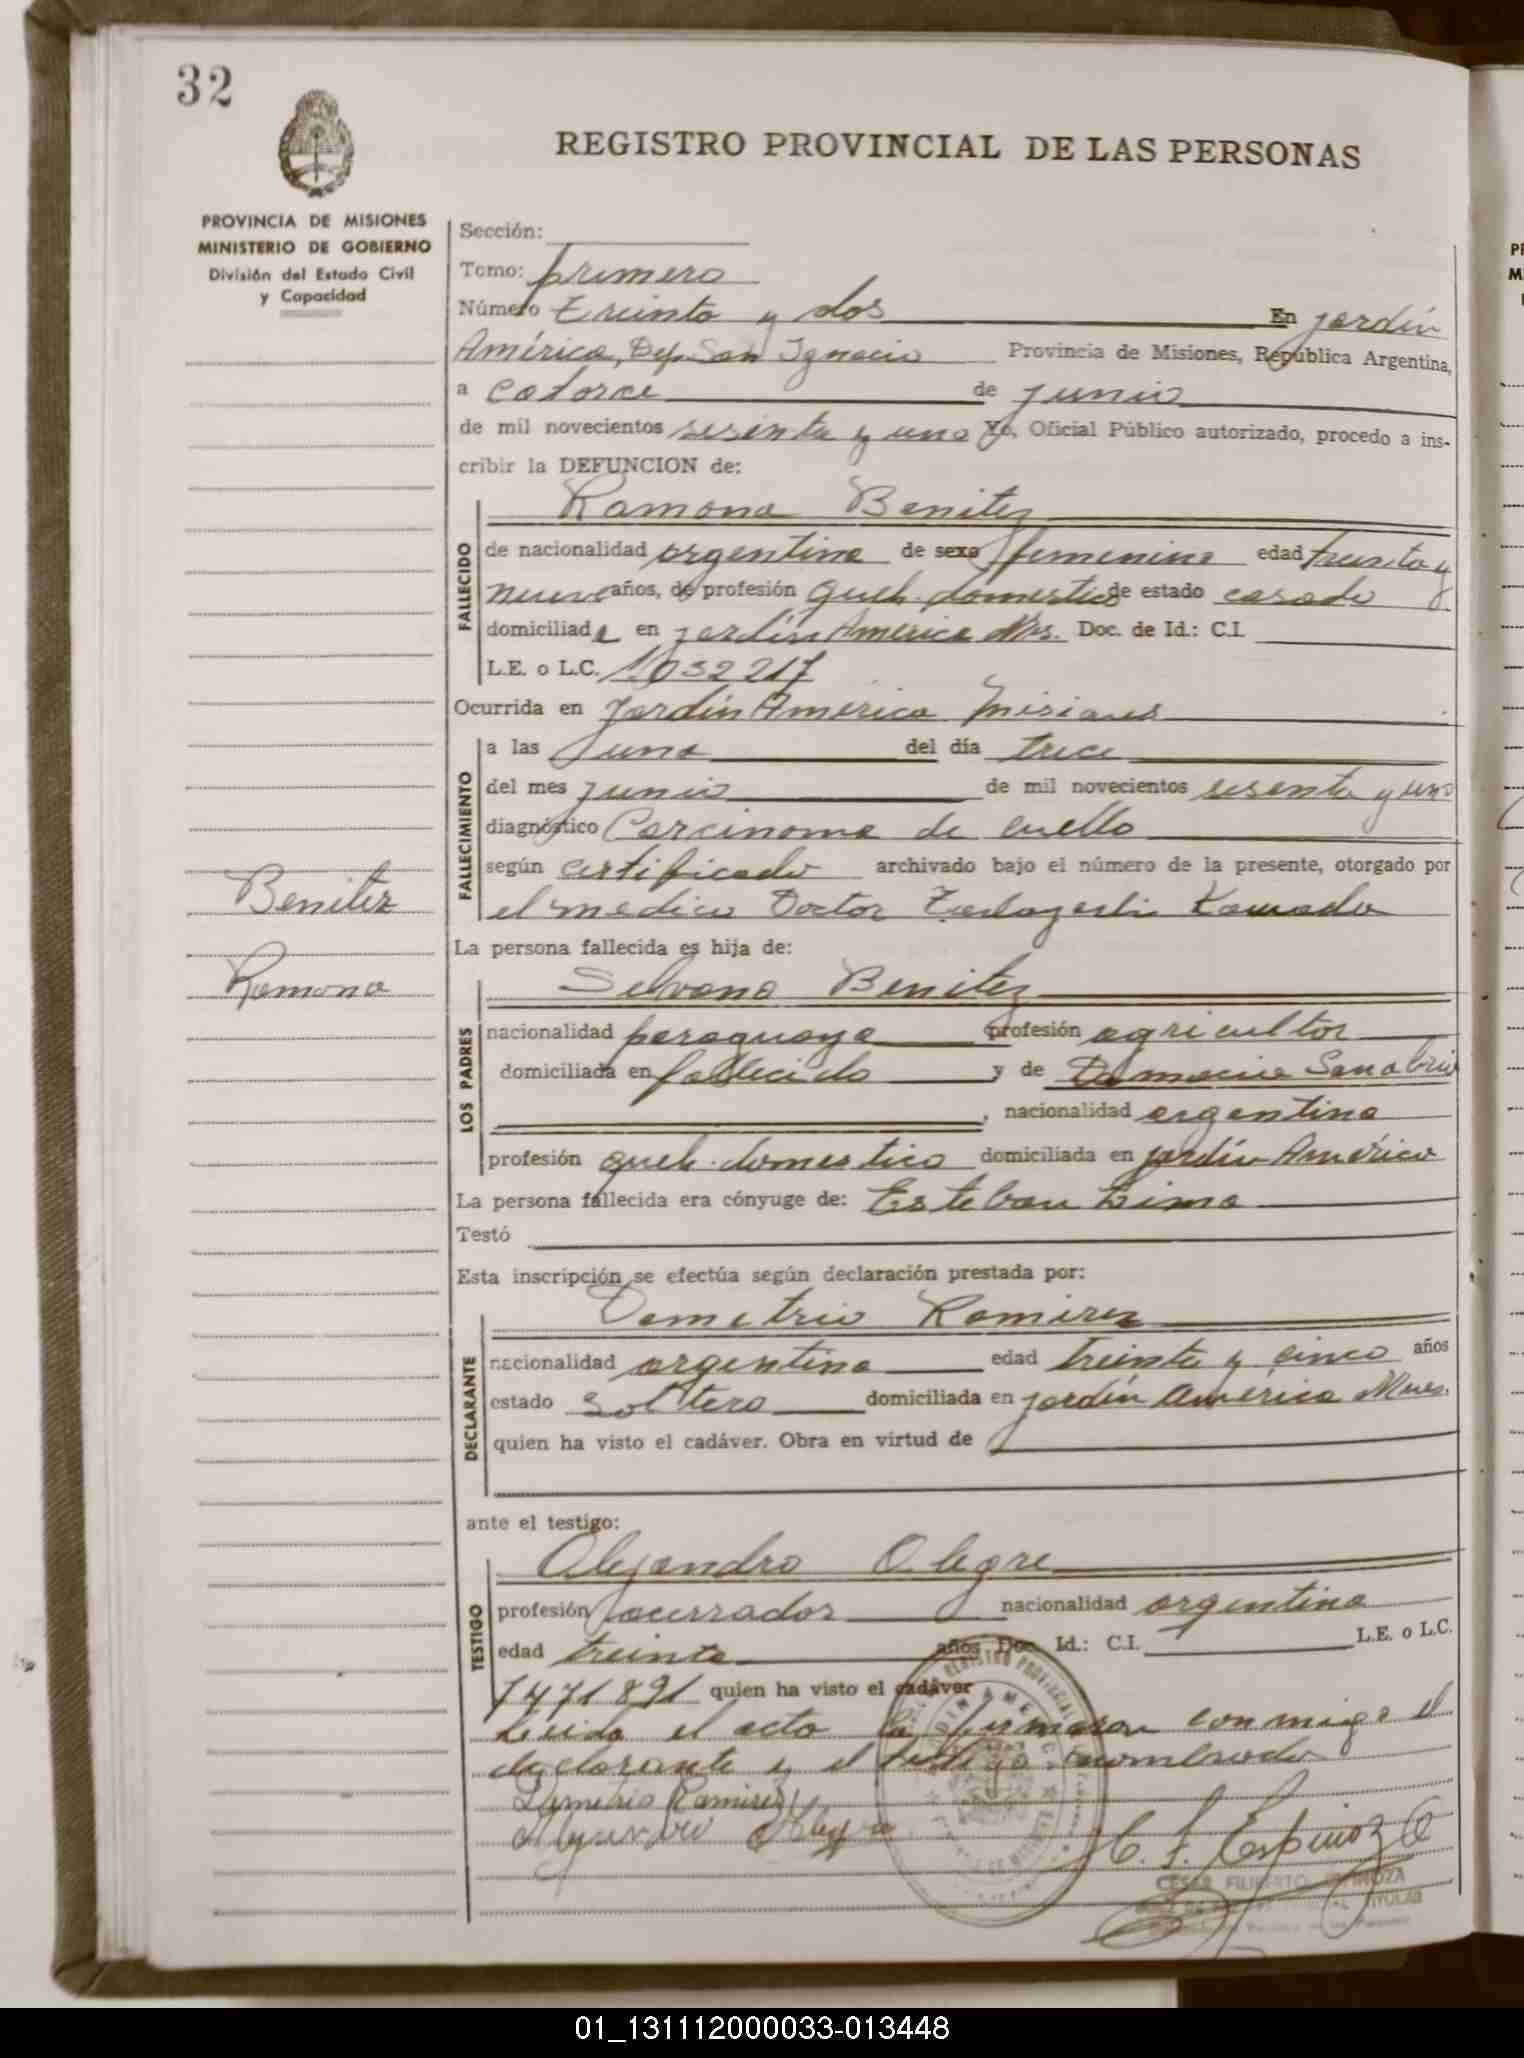 32
REGISTRO PROVINCIAL DE LAS PERSONAS
PROVINCIA DE MISIONES
MINISTERIO DE GOBIERNO
División del Estado Civil
y Capacidad
Sección:
Tomo: primero
Número treinta y dos En jardín
América, Dep. San Ignacio Provincia de Misiones, República Argentina,
a catorce de junio
de mil novecientos sesenta y uno Yo, Oficial Público autorizado, procedo a ins-
cribir la DEFUNCION de:
Ramona Benitez
FALLECIDO
de nacionalidad argentina de sexo femenino edad treinta y
nueve años, de profesión queh. domestico de estado casada
domiciliada en jardín America Mns. Doc. de Id.: C.I.
L.E. o L.C. 1032217
Ocurrida en Jardín América Misiones
FALLECIMIENTO
a las una del día trece
del mes junio de mil novecientos sesenta y uno
diagnóstico Carcinoma de cuello
según certificado archivado bajo el número de la presente, otorgado por
el medico Doctor Kamada
Benitez
Ramona
La persona fallecida es hija de:
LOS PADRES
Selvano Benitez
nacionalidad paraguaya profesión agricultor
domiciliada en fallecido y de Damacia Sanabria
, nacionalidad argentina
profesión queh. domestico domiciliada en jardín América
La persona fallecida era cónyuge de: Esteban Lima
Testó
Esta inscripción se efectúa según declaración prestada por:
DECLARANTE
Demetrio Ramirez
nacionalidad argentina edad treinta y cinco años
estado soltero domiciliada en jardín América Mnes.
quien ha visto el cadáver. Obra en virtud de
ante el testigo:
TESTIGO
Alejandro Alegre
profesión acerrador nacionalidad argentina
edad treinta años Doc. Id.: C.I. L.E. o L.C.
7471891 quien ha visto el cadáver
Leida el acta la firmaron conmigo el
declarante y el testigo nombrado
Demetrio Ramirez
Alejandro Alegre
C. F. Espinoza
CESAR FILIBERTO ESPINOZA
01_131112000033-013448